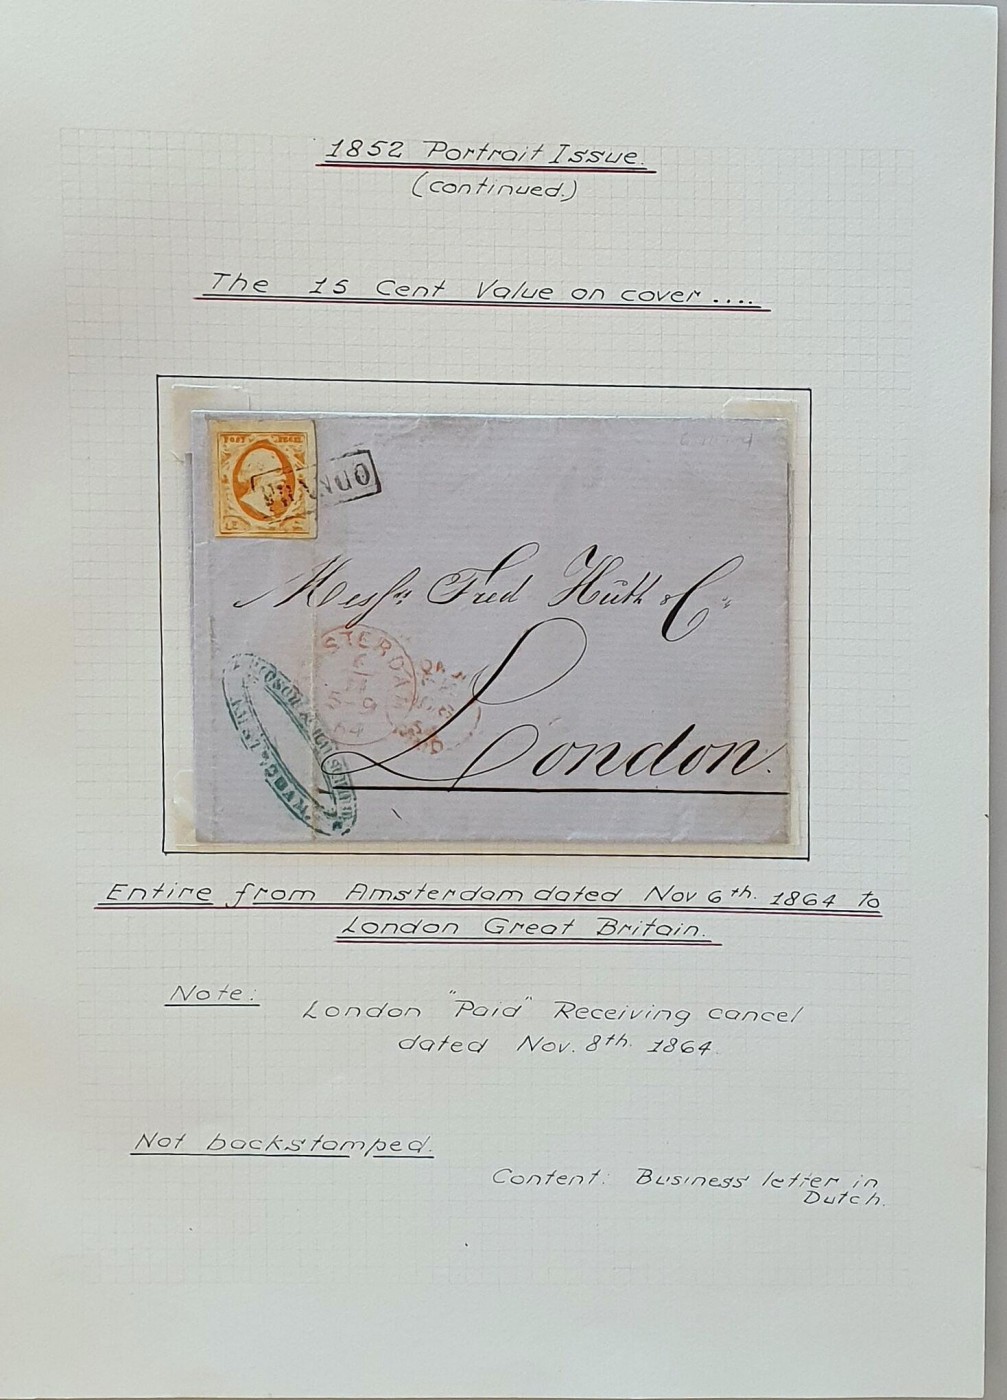 1852 Portrait Issue.
(continued.)
The 15 Cent Value on cover ....
POST ZEGEL
FRANCO
Messrs Fred Hüth & Co
London.
Entire from Amsterdam dated Nov 6th. 1864 to
London Great Britain.
Note:
London "Paid" Receiving cancel
dated Nov. 8th. 1864.
Not backstamped.
Content: Business letter in
Dutch.